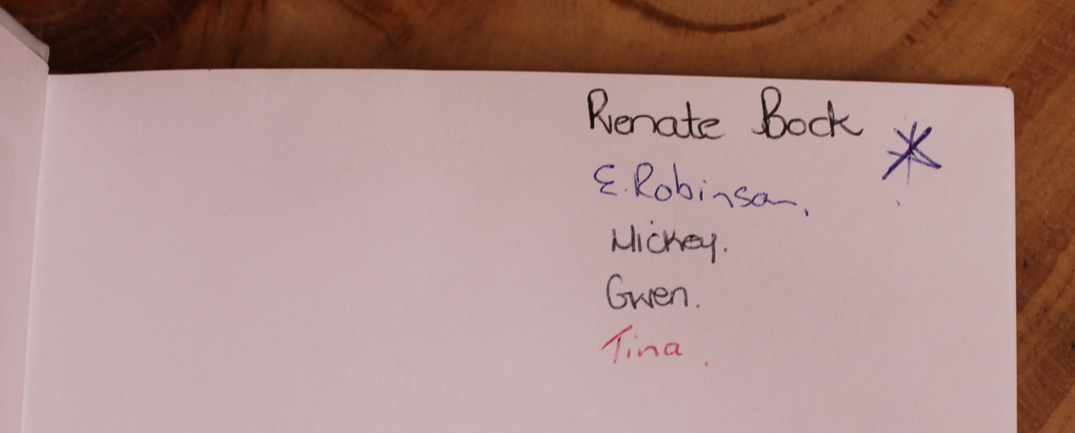 Renate Bock *
E. Robinson,
Mickey.
Gwen.
Tina.